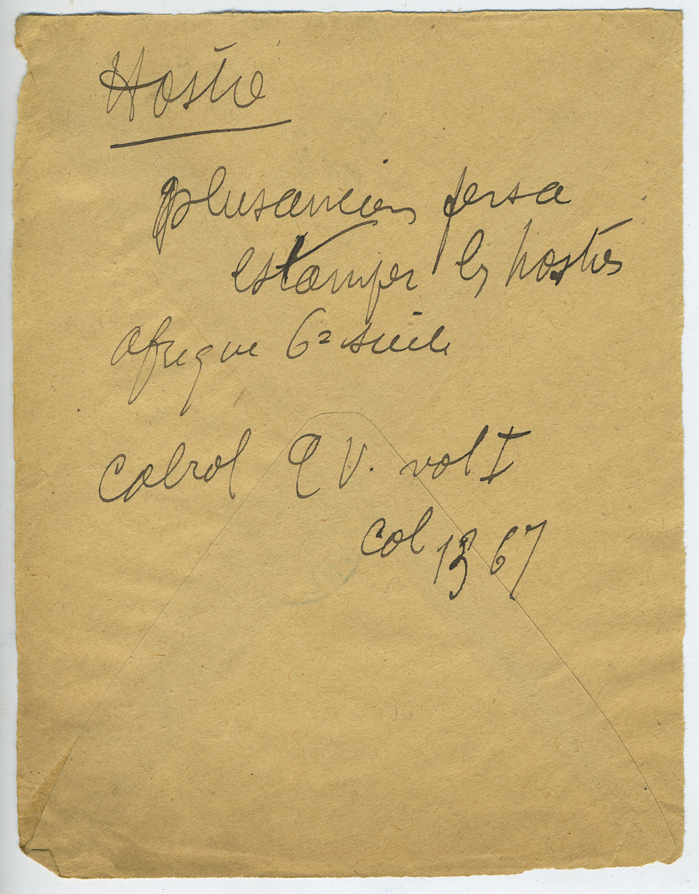 Hostie
plus ancien fer sa
estamper les hosties
Afrique 6e siècle
Cabrol V. vol I
col 1367